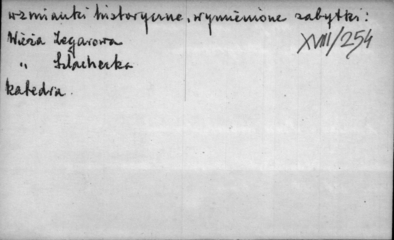 wzmianki historyczne, wymienione zabytki:
Wieża Zegarowa
XVIII/254
„ Szlachecka
katedra.